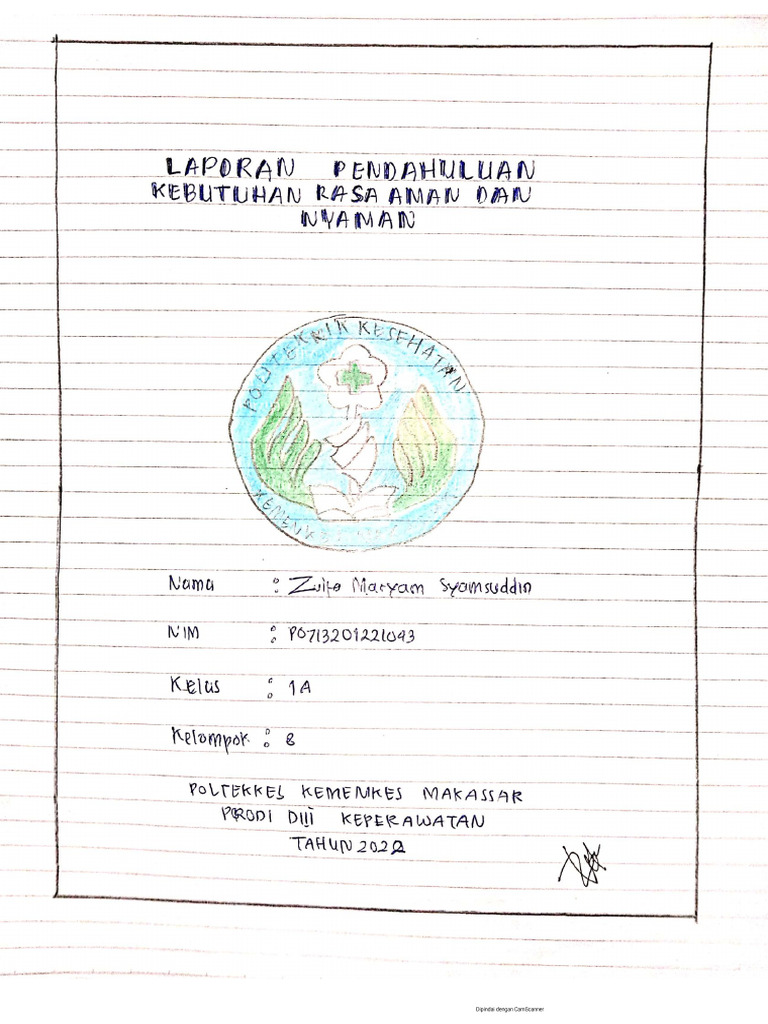 LAPORAN PENDAHULUAN
KEBUTUHAN RASA AMAN DAN
NYAMAN
POLITEKNIK KESEHATAN
Nama : Zulfa Maryam Syamsuddin
NIM : PO713201221043
Kelas : 1A
Kelompok : 8
POLTEKKES KEMENKES MAKASSAR
PRODI DIII KEPERAWATAN
TAHUN 2022
Dipindai dengan CamScanner